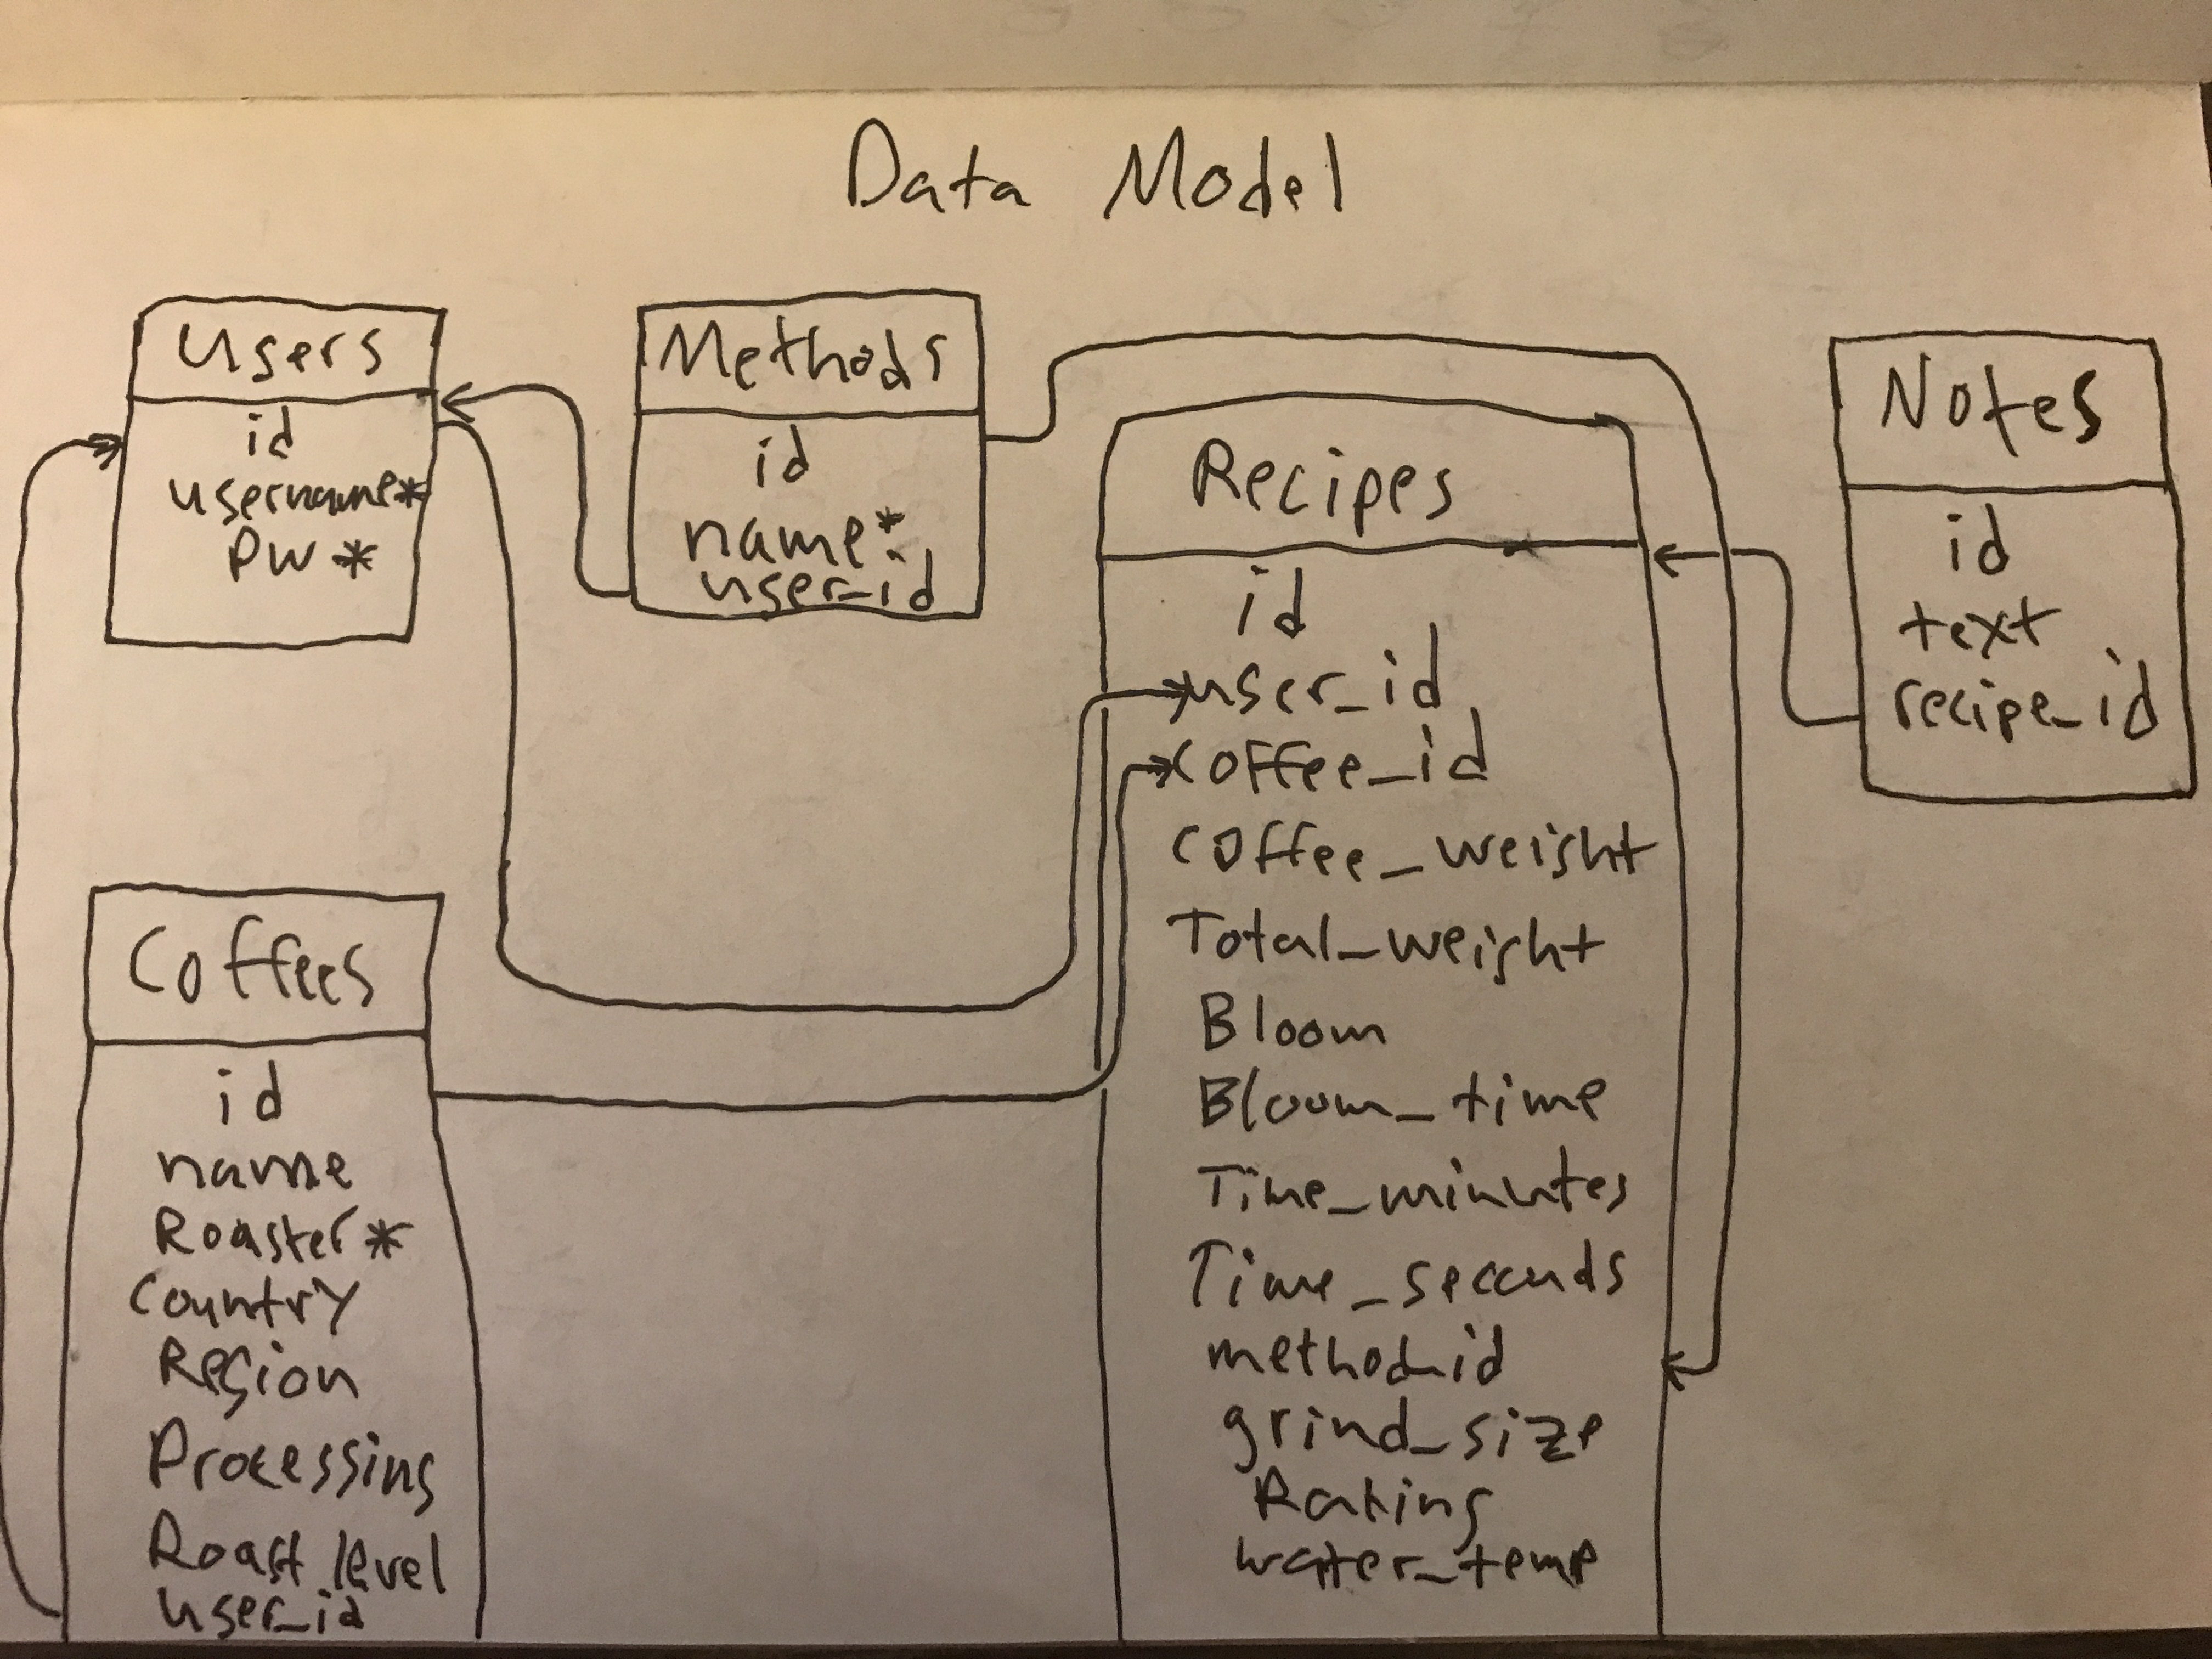 Data Model
Users
id
username*
PW*
Methods
id
name*
user_id
Recipes
id
user_id
coffee_id
coffee_weight
Total_weight
Bloom
Bloom_time
Time_minutes
Time_seconds
method_id
grind_size
Rating
water_temp
Notes
id
text
recipe_id
Coffees
id
name
Roaster*
Country
Region
Processing
Roast level
user_id